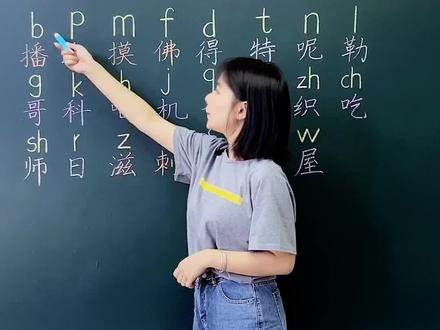 b p m f d t n l
播 摸 佛 得 特 呢 勒
g k h j q zh ch
哥 科 机 织 吃
sh r z w
师 日 滋 刺 屋